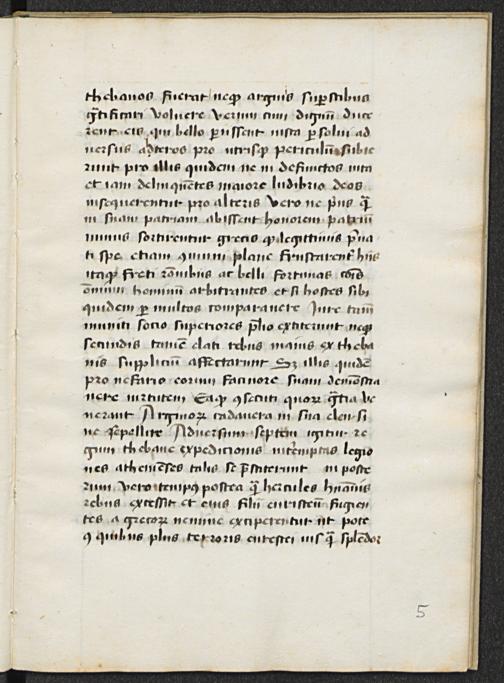 thebanos fuerat neqꝫ argiuis suꝑstitibus
gͣtificari voluere verum cum dignũ duce
rent eis qui bello ꝑissent iusta ꝑsolui ad
uersus alteros pro utrisqꝫ periculũ subie
runt pro illis quidem ne in defunctos iura
et iam delinquentes maiore ludibrio deos
insequerentur pro alteris vero ne pͥus qͣ
in suam patriam abissent honorem patriũ
minus sortirentur grecis qꝫ legittimis pͥua
ti spe etiam ꝯmuni plane frustarentʳ hiis
itaqꝫ freti rãnibus ac belli fortunas cõẽs
omnium hominũ arbitrantes et si hostes sibi
quidem ꝑ multos compararere Iure tam̃
muniti socio superiores p̃lio extiterunt neqꝫ
secundis tamẽ elati rebus maius ex theba
nis supplicium affectarunt Sꝫ illis quidẽ
pro nefario eorum facinore suam demõstra
uere uirtutem Eaqꝫ ꝯsecuti quoꝝ gͣtia ve
nerant Argiuoꝝ cadauera in sua eleusi
ne sepellire Aduersum septem igitur re
gum thebane expedicionis intemptas legio
nes athenienses talis se p̃stiterunt in poste
rum vero tempꝯ postea qͣ hercules hũanis
rebus excessit et eius filii euristeũ fugien
tes a grecoꝝ nemine exciperentur ut pote
ꝯ quibus plus terroris euristei uis qͣ splẽdor
5